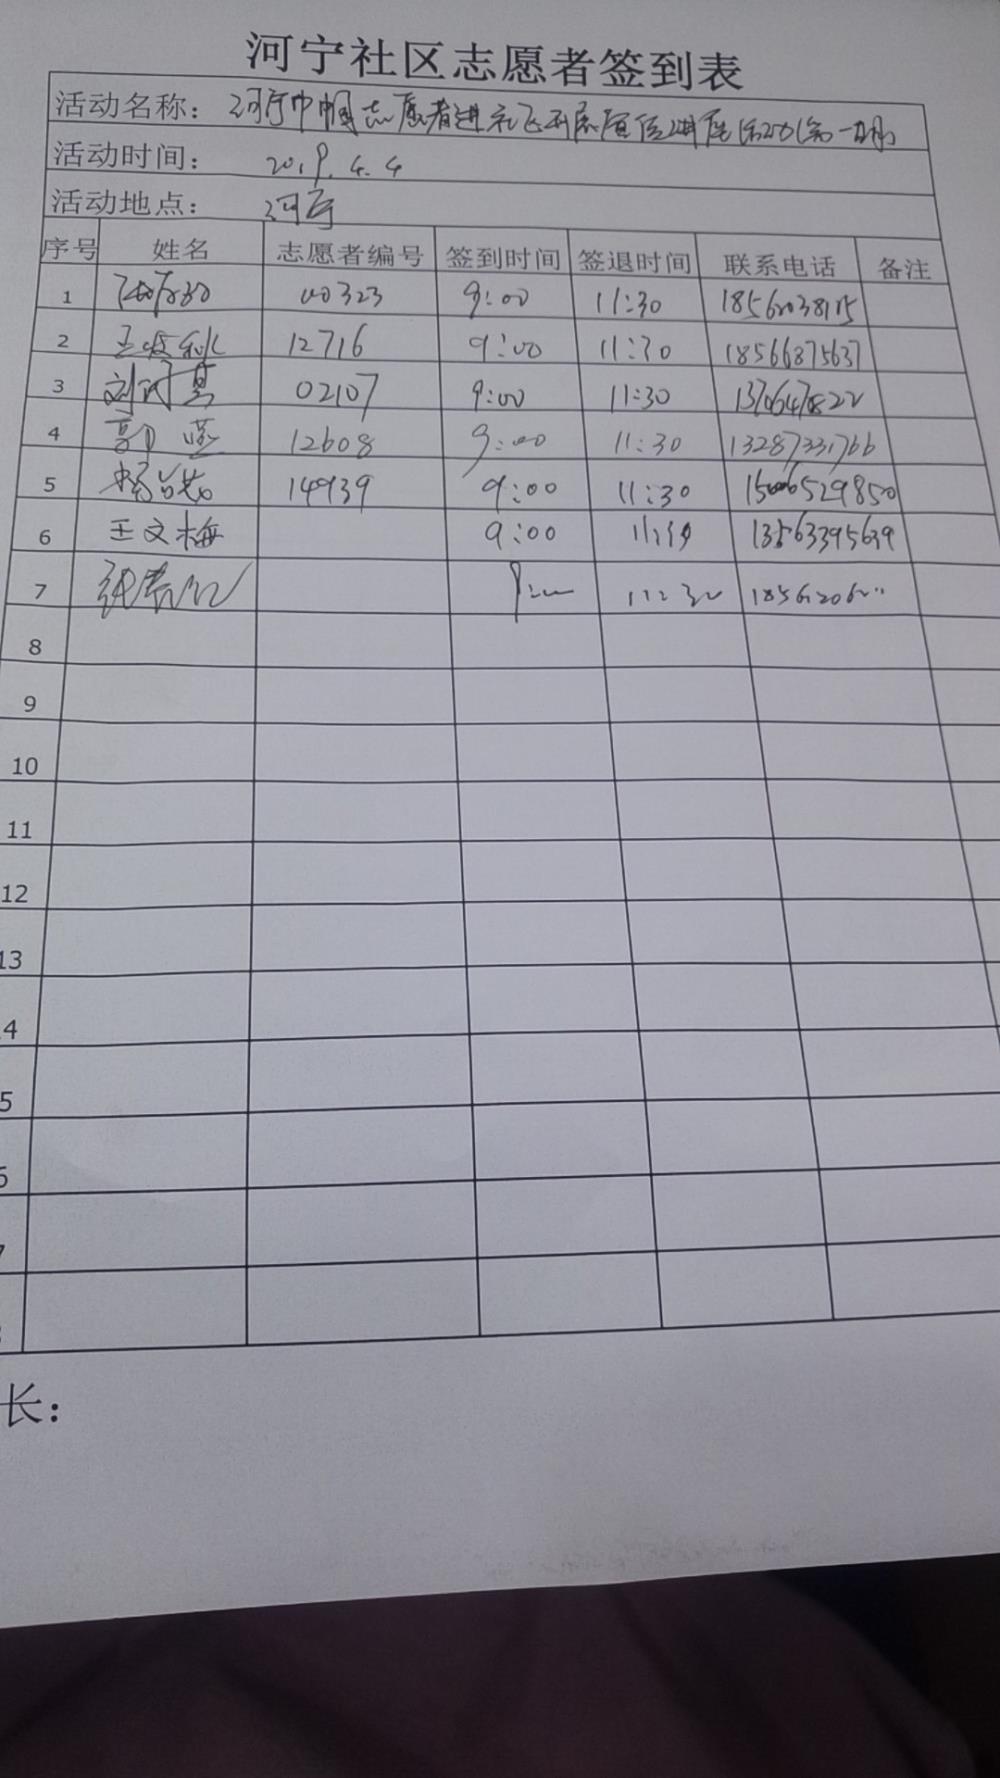 河宁社区志愿者签到表
活动名称： 河宁巾帼志愿者进社区开展宣传讲座活动(第一期)
活动时间： 2019.4.4
活动地点： 河宁
序号 姓名 志愿者编号 签到时间 签退时间 联系电话 备注
1 00323 9:00 11:30
2 王 秋 12716 9:00 11:30 18566875637
3 刘 02107 9:00 11:30 13706478822
4 郭 莲 12608 9:00 11:30 13287331766
5 杨 14939 9:00 11:30 15006529850
6 王文梅 9:00 11:30 13563395639
7 9:00 11:30
8
9
10
11
12
13
4
5
6
7
长：